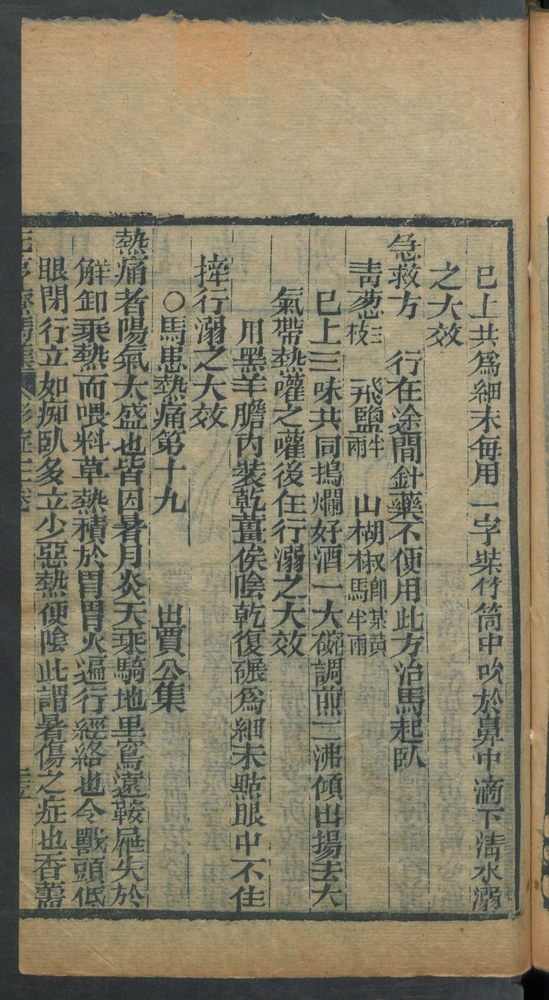 已上共為細末每用一字裝竹筒中吹於鼻中滴下清水溺
之大效
急救方 行在途間針藥不便用此方治馬起臥
青葱三枝 飛鹽半兩 山胡椒即某黃馬半兩
已上三味共同搗爛好酒一大碗調煎二沸傾出揚去大
氣帶熱灌之灌後住行溺之大效
用黑羊膽內裝乾薑俟陰乾復碾為細末點眼中不住
摔行溺之大效
○馬患熱痛第十九 出賈公集
熱痛者陽氣太盛也皆因暑月炎天乘騎地里窵遠鞍屜失於
解卸乘熱而喂料草熱積於胃胃火遍行經絡也令獸頭低
眼閉行立如痴臥多立少惡熱便陰此謂暑傷之症也香薷